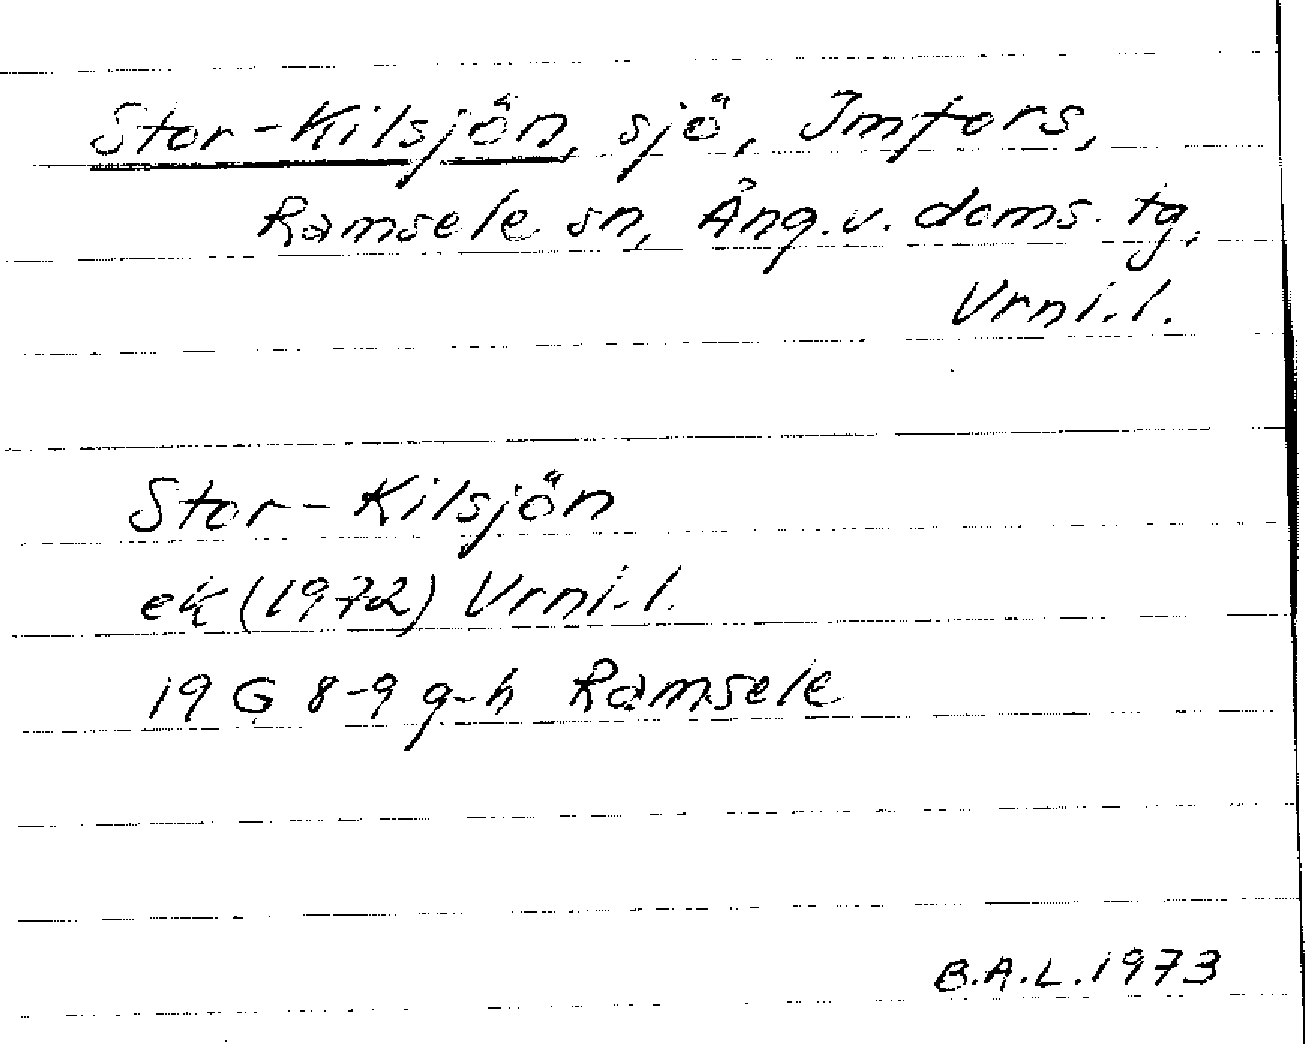 Stor-Kilsjön, sjö, Imfors,
Ramsele sn, Ång.v. doms. tg,
Vrni.l.
Stor-Kilsjön
ek (1972) Vrni.l.
19 G 8-9 g-h Ramsele
B.A.L. 1973